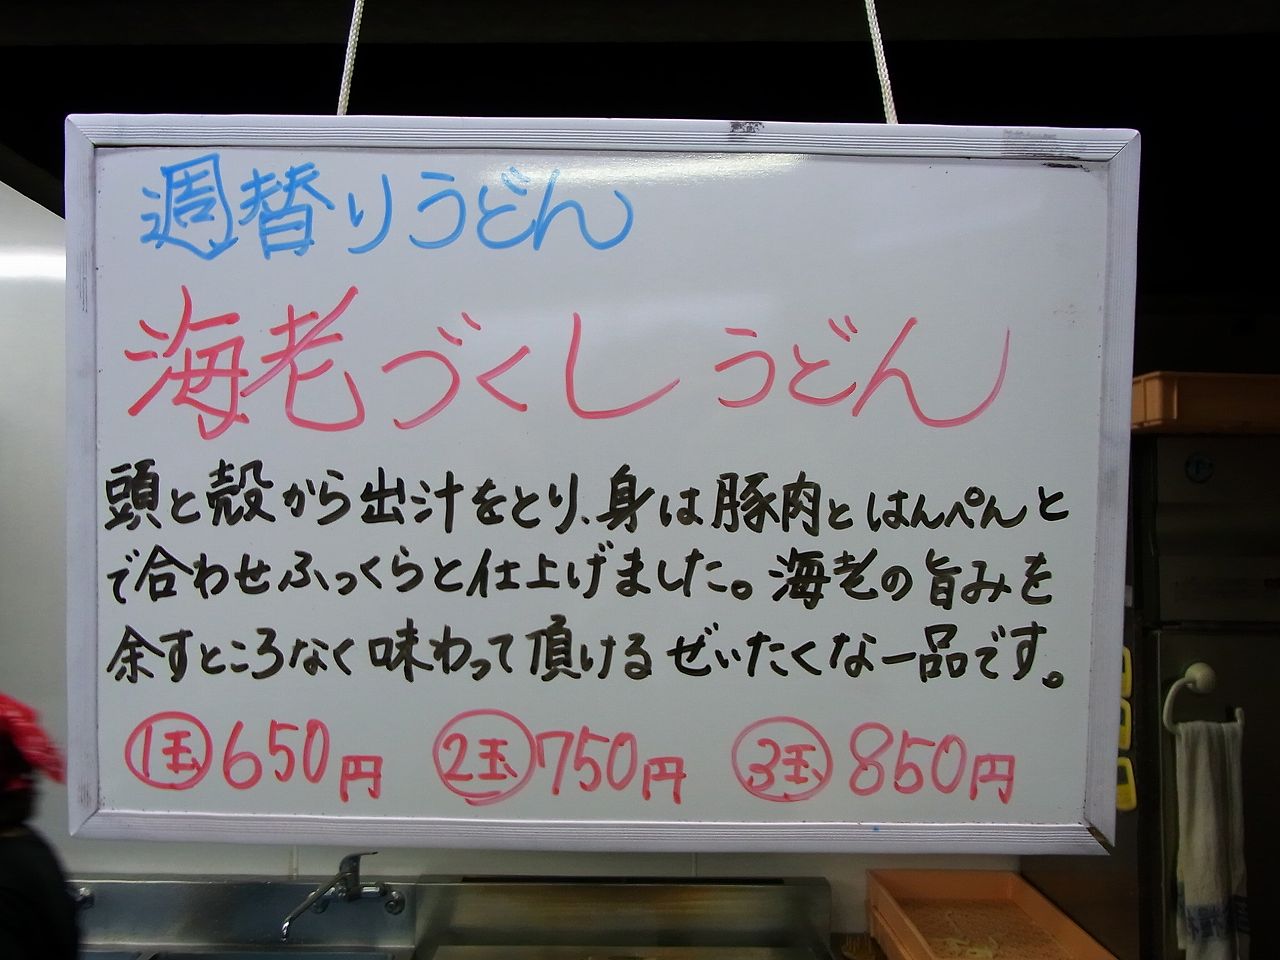 週替りうどん
海老づくしうどん
頭と殻から出汁をとり、身は豚肉とはんぺんと
で合わせふっくらと仕上げました。海老の旨みを
余すところなく味わって頂けるぜいたくな一品です。
1玉 650円 2玉 750円 3玉 850円